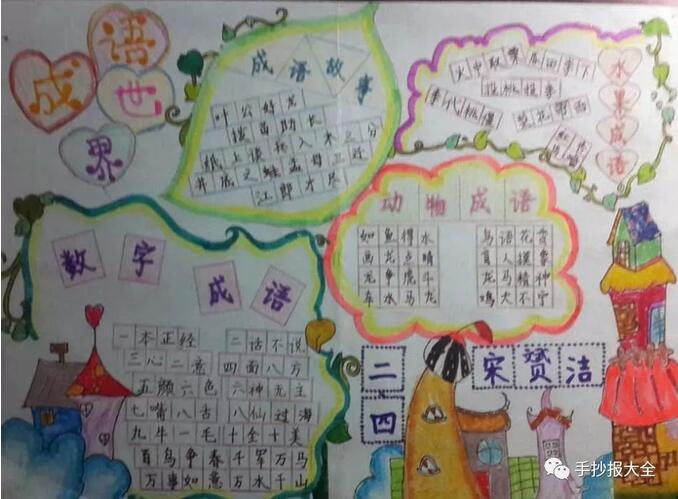 成语世界
成语故事
叶公好龙
拔苗助长
纸上谈兵 入木三分
井底之蛙 孟母三迁
江郎才尽
水果成语
火中取栗 瓜田李下
投桃报李
李代桃僵
动物成语
如鱼得水 鸟语花香
画龙点睛 盲人摸象
龙争虎斗 龙马精神
车水马龙 鸡犬不宁
数字成语
一本正经 二话不说
三心二意 四面八方
五颜六色 六神无主
七嘴八舌 八仙过海
九牛一毛 十全十美
百鸟争春 千军万马
万事如意 万水千山
二四
宋赟洁
手抄报大全